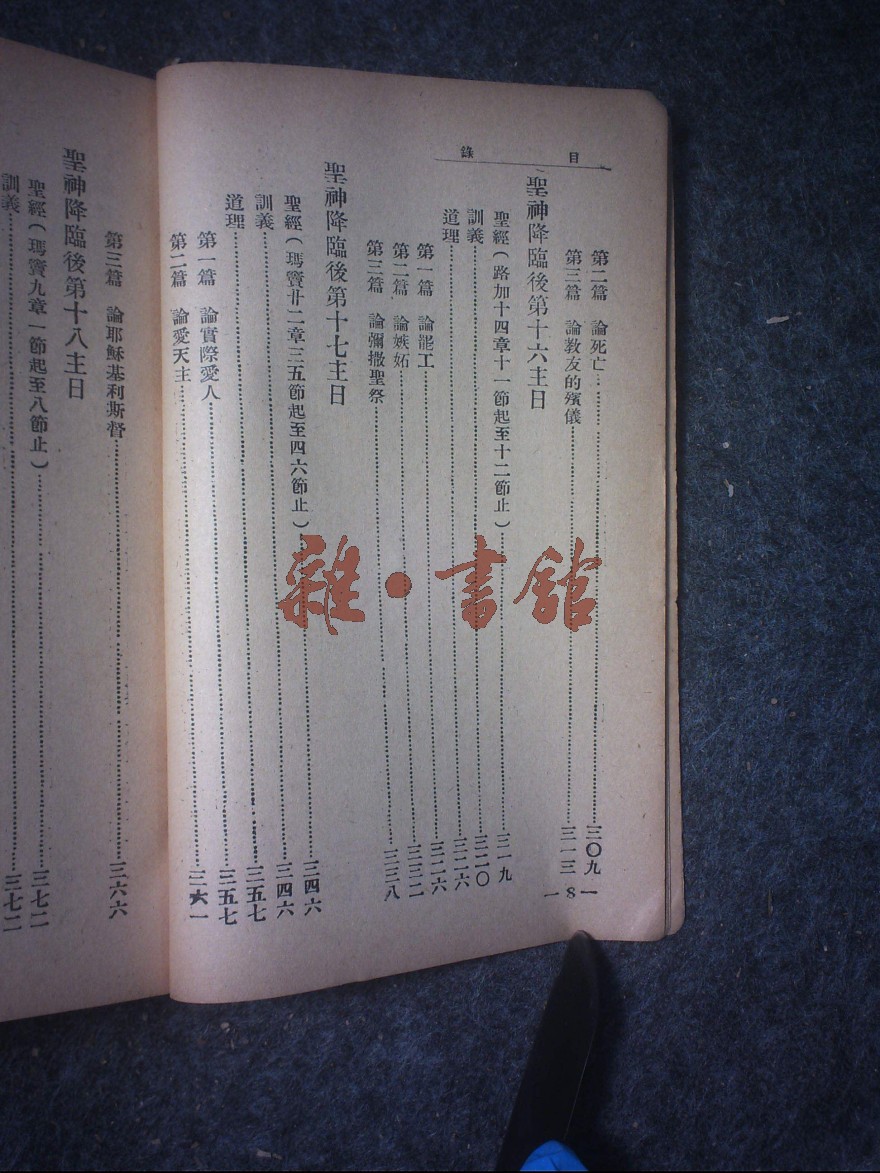 目錄
第二篇　論死亡……三〇九
第三篇　論教友的殯儀……三一三
聖神降臨後第十六主日
聖經(路加十四章十一節起至十二節止)……三一九
訓義……三二〇
道理……三二六
第一篇　論罷工……三二六
第二篇　論嫉妬……三三二
第三篇　論彌撒聖祭……三三八
聖神降臨後第十七主日
聖經(瑪竇廿二章三五節起至四六節止)……三四六
訓義……三四六
道理……三五七
第一篇　論實際愛人……三五七
第二篇　論愛天主……三六一
— 8 —
第三篇　論耶穌基利斯督……三六六
聖神降臨後第十八主日
聖經(瑪竇九章一節起至八節止)……三七二
訓義……三七二
雜·書館